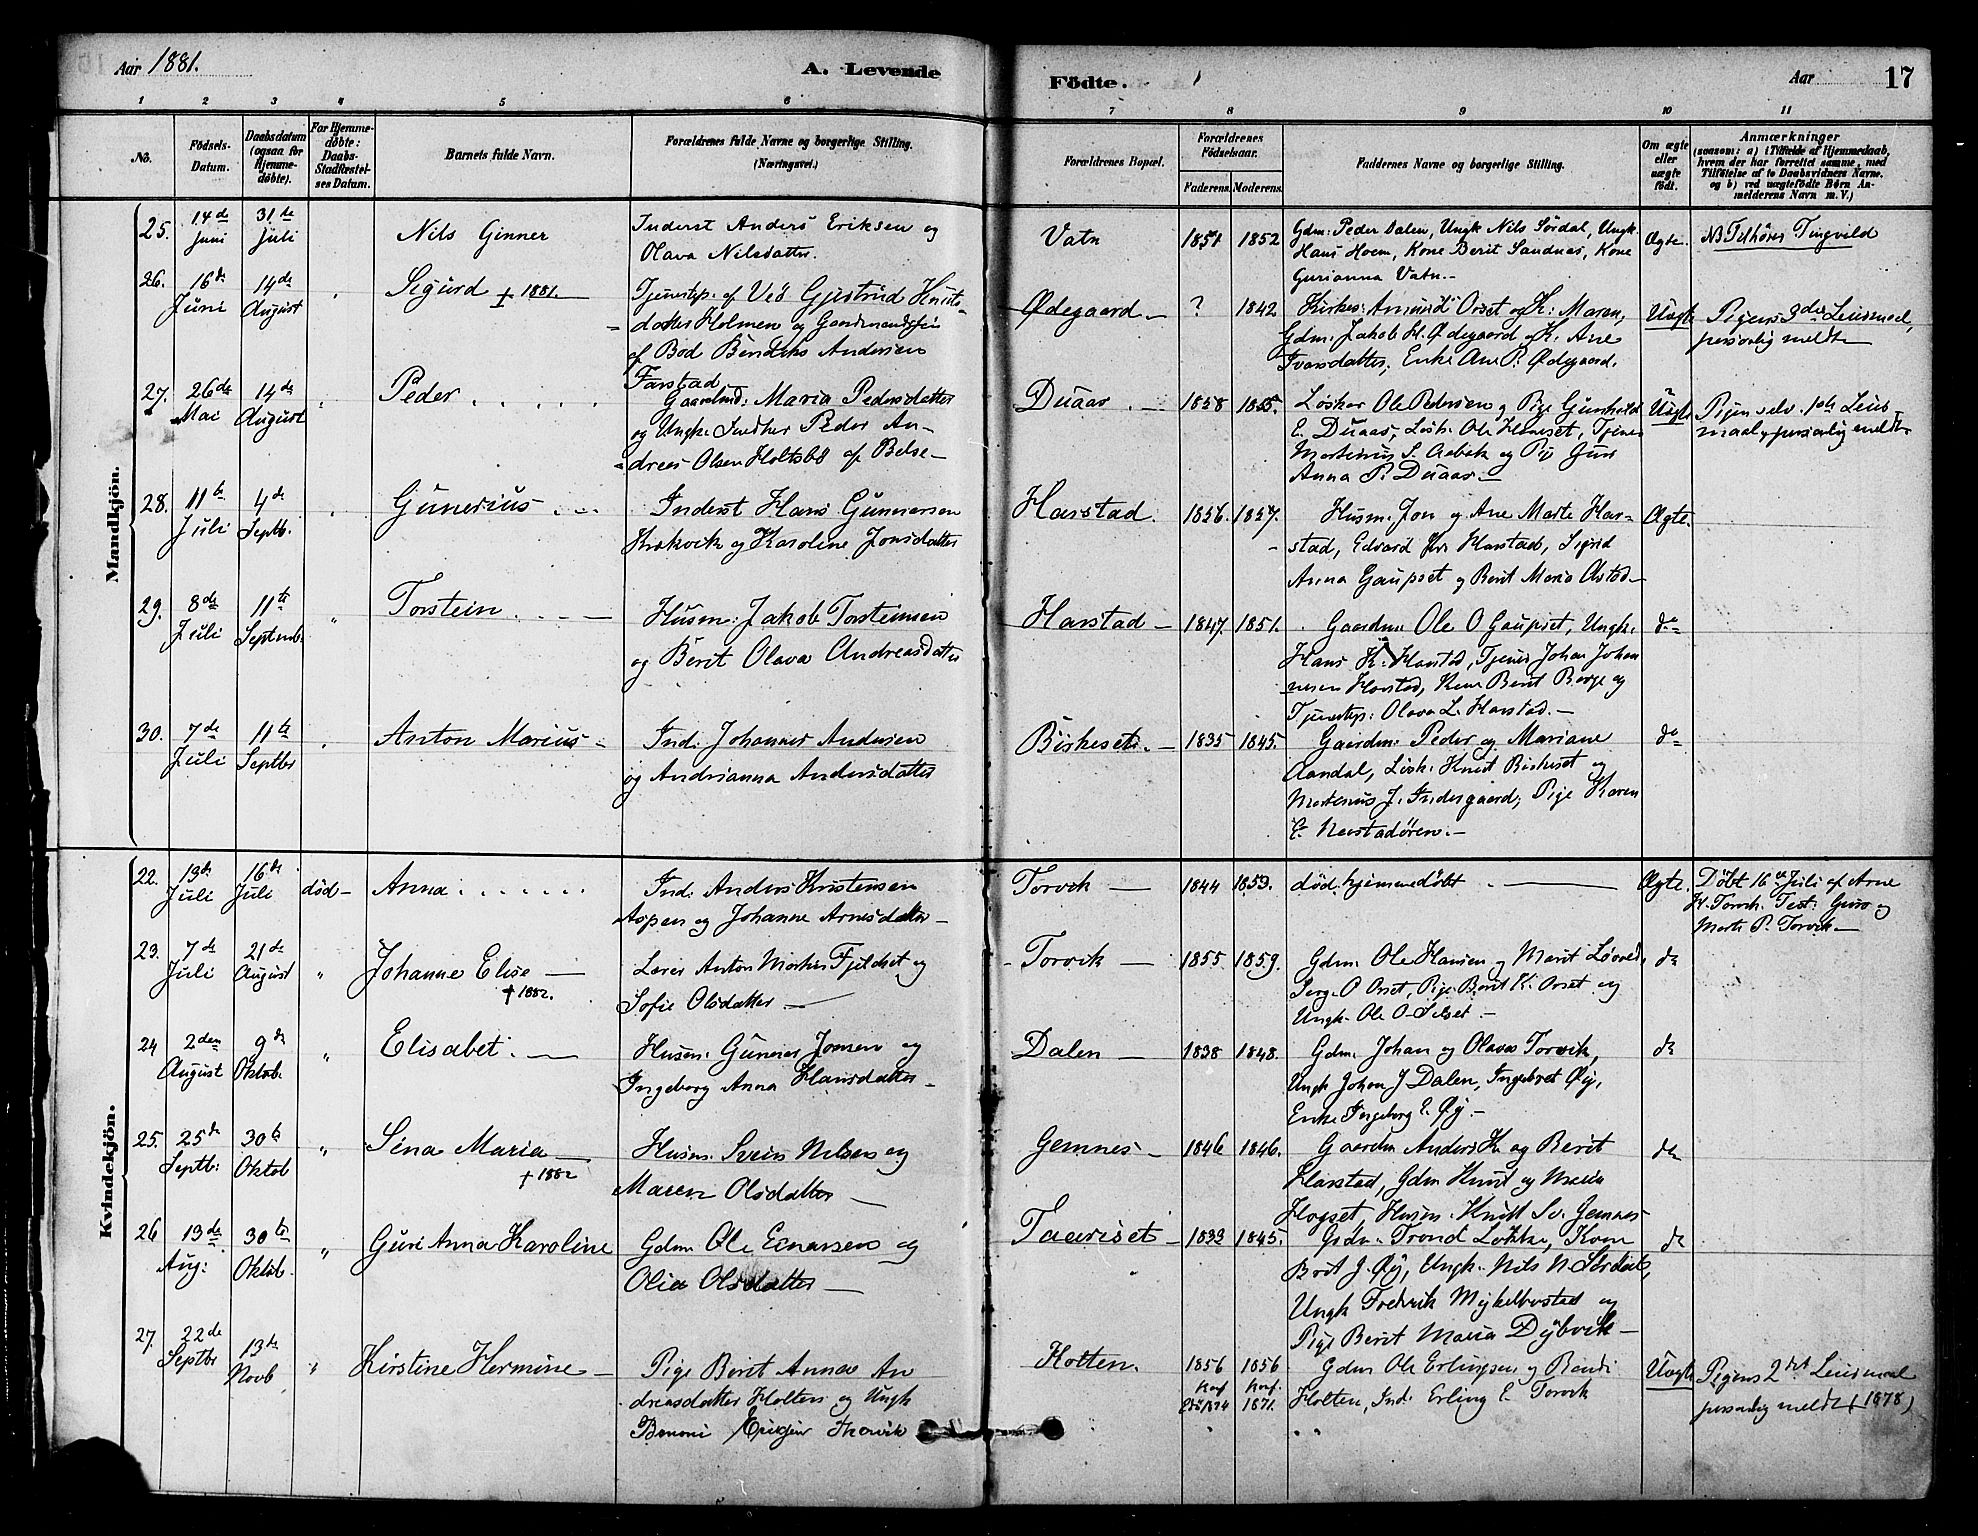 Aar 1881.
A. Levende
Födte.
Aar
17
1 2 3 4 5 6 7 8 9 10 11
No.
Födsels-Datum.
Daabsdatum (ogsaa for Hjemme-döbte).
For Hjemme-döbte: Daabs-Stadfæstel-ses Datum.
Barnets fulde Navn.
Forældrenes fulde Navne og borgerlige Stilling. (Næringsvei.)
Forældrenes Bopæl.
Forældrenes Födselsaar.
Faderens. Moderens.
Faddernes Navne og borgerlige Stilling.
Om ægte eller uægte födt.
Anmærkninger
(saasom: a) i Tilfælde af Hjemmedaab, hvem der har forrettet samme, med Tilföielse af to Daabsvidners Navne. og b) ved uægtefödte Börn An-melderens Navn m. V.)
Mandkjön.
25. 14de Juni 31te Juli Nils Ginner
Inderst Anders Eriksen og
Olava Nilsdatter.
Vatn 1851 1852
Gdm: Peder Dalen, Ungk Nils Sördal, Ungk.
Hans Hoem, Kone Berit Sandnes, Kone
Gurianna Vatn.-
Ægte. NB Tilhörer Tingvild
26. 16de Juni 14de August Sigurd + 1881.
Tjenestep. af Veö Gjertrud Knuts-
datter Holmen og Gaardmandssön
af Bod Bendiks Andersen
Farstad
Ødegaard - ? 1842
Kirkes: Amund Orset og K: Maren,
Gdm. Jakob H. Ødegaard og K. Ane
Ivarsdatter, Enke Ane P. Ødegaard.
Uægte Pigens 3die Leiermaal,
personlig meldt
27. 26de Mai 14de August Peder
Maria Pedersdatter
og Ungk. Peder An-
dreas Olsen Holtsbö af Bolsö
Duaas 1858 1855.
Lösker Ole Pedersen og Pige Gunhild
E. Duaas, Lösk. Ole Hameset, Tjener
Martinus S. Aabak og Pige Guri
Anna P. Duaas
Uægte Pigen selv. 1ste Leier
maal, personlig meldt
28. 11te Juli 4de Septb. Gunerius
Inderst Hans Gunnersen
Krokvik og Karoline Jonsdatter
Harstad. 1856. 1857.
Husm. Jon og Ane Marte Har-
stad, Edvard Harstad, Sigrid
Anna Gaupset og Berit Maria
Ægte.
29. 8de Juli 11te Septemb. Torstein
Husm: Jakob Torsteinsen
og Berit Olava Andreasdatter
Harstad - 1847. 1851.
Gaardm. Ole O Gaupset, Ungk.
Hans K. Harstad, Tjener Johan Johan
nesen Harstad, Kone Berit Berge og
Tjenestep: Olava L. Harstad.-
do
30. 7de Juli 11te Septbr Anton Marius
Ind. Johannes Andersen
og Andrianna Andersdatter
Birkeset. - 1835 1845.
Gaardm. Peder og Mariane
Aandal, Lösk. Knut Birkeset og
Martinus J. Indergaard, Pige Karen
E. Nerstadören.-
do
Kvindekjön.
22. 13de Juli 16de Juli död- Anna
Ind. Anders Kristensen
Aspen og Johanne Arnesdatter
Torvik 1844 1853.
död, hjemmedöbt
Ægte. Döbt 16de Juli af Arne
K. Torvik. Test: Guro og
Marte P. Torvik
23. 7de Juli 21de August " Johanne Elise
+ 1882.
Lærer Anton Martin Fjeldset og
Sofie Olsdatter
Torvik 1855 1859.
Gdm. Ole Hansen og Marit Lövod,
Serg. O Orset, Pige Berit K. Orset og
Ungk. Ole O Silset.-
do
24 2den August 9de Oktob. " Elisabet.
Husm. Gunner Jonsen og
Ingeborg Anna Hansdatter
Dalen 1838 1848.
Gdm. Johan og Olava Torvik,
Ungk Johan J Dalen, Ingebret Øij,
Enke Ingeborg E. Øij.-
do
25. 25de Septb: 30te Oktob " Sina Maria
+ 1882
Husm. Svein Nilsen og
Maren Olsdatter
Gemnes 1846 1846.
Gaardm Anders K. og Berit
Harstad, Gdm Knut og Maria
Hogset, Husm. Knut Sv. Gemnes
do
26 13de Aug: 30te Oktob. " Guri Anna Karoline
Gdm. Ole Einarsen og
Olia Olsdatter
Tauriset 1833 1845.
Gdm. Trond Lökke, Kone
Brit J. Øij, Ungk. Nils N. Sördal,
Ungk Fredrik Mykelbostad og
Pige Berit Maria Dybvik
do
27. 22de Septbr 13de Novb " Kirstine Hermine
Pige Berit Anna An
dreasdatter Holten og Ungk
Benoni Eriksen
Holten. 1856 Konf. 1874 1856 Konf. 1871.
Gdm Ole Erlingsen og Randi
Holten, Ind. Erling E. Torvik
Uægte Pigens 2det Leiermaal
personlig meldt (1878)